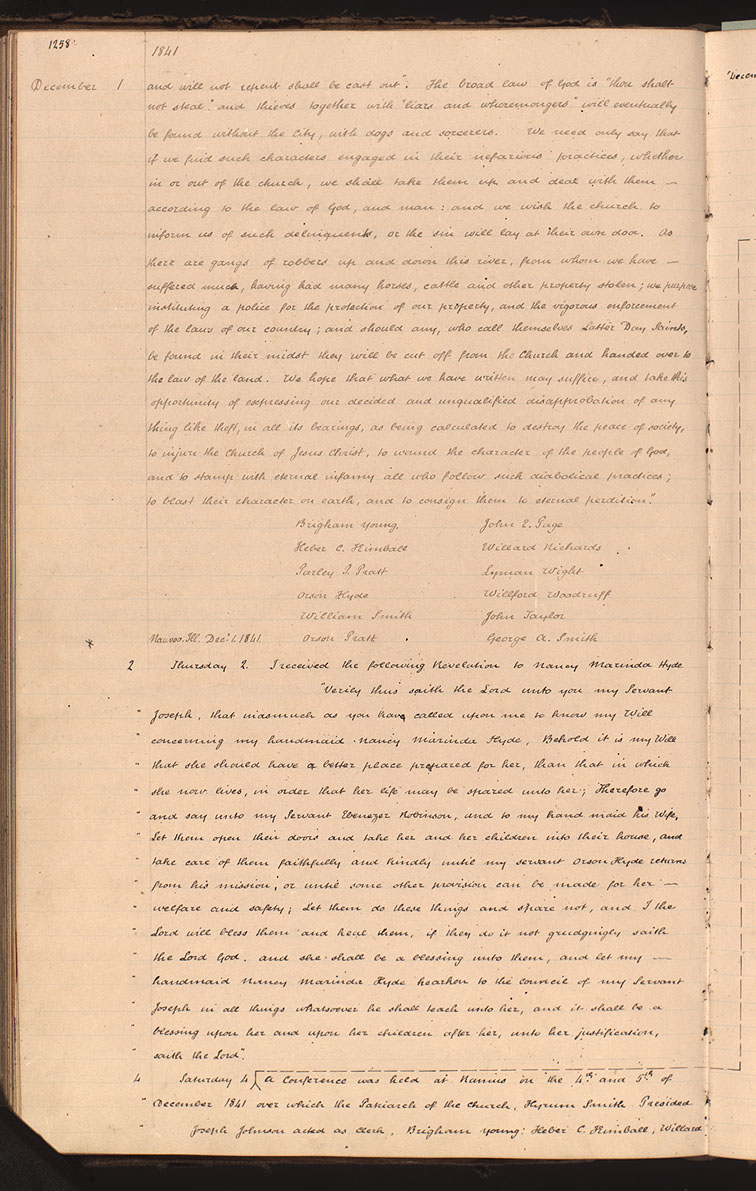 1258
1841
December 1 and will not repent shall be cast out". The broad law of God is "thou shalt
not steal" and thieves together with "liars and whoremongers" will eventually
be found without the City, with dogs and sorcerers. We need only say that
if we find such characters engaged in their nefarious practices, whether
in or out of the church, we shall take them up and deal with them —
according to the law of God, and man: and we wish the church to
inform us of such delinquents, or the sin will lay at their own door. As
there are gangs of robbers up and down this river, from whom we have —
suffered much, having had many horses, cattle and other property stolen; we purpose
instituting a police for the protection of our property, and the vigorous enforcement
of the laws of our country; and should any, who call themselves Latter Day Saints,
be found in their midst they will be cut off from the Church and handed over to
the law of the land. We hope that what we have written may suffice, and take this
opportunity of expressing our decided and unqualified disapprobation of any
thing like theft, in all its bearings, as being calculated to destroy the peace of society,
to injure the Church of Jesus Christ, to wound the character of the people of God,
and to stamp with eternal infamy all who follow such diabolical practices;
to blast their character on earth, and to consign them to eternal perdition".
Brigham Young. John E. Page
Heber C. Kimball Willard Richards
Parley P. Pratt Lyman Wight
Orson Hyde Willford Woodruff
William Smith John Taylor
Nauvoo. Ill. Decr. 1. 1841. Orson Pratt George A. Smith
2 Thursday 2. I received the following Revelation to Nancy Marinda Hyde
"Verily thus saith the Lord unto you my Servant
" Joseph, that inasmuch as you have called upon me to know my Will
" concerning my handmaid Nancy Marinda Hyde, Behold it is my Will
" that she should have a better place prepared for her, than that in which
" she now lives, in order that her life may be spared unto her; Therefore go
" and say unto my Servant Ebenezer Robinson, and to my hand maid his Wife,
" Let them open their doors and take her and her children into their house, and
" take care of them faithfully and kindly until my servant Orson Hyde returns
" from his mission, or until some other provision can be made for her —
" welfare and safety; Let them do these things and spare not, and I the
" Lord will bless them and heal them, if they do it not grudgingly saith
" the Lord God. and she shall be a blessing unto them, and let my —
" handmaid Nancy Marinda Hyde hearken to the council of my Servant
" Joseph in all things whatsoever he shall teach unto her, and it shall be a
" blessing upon her and upon her children after her, unto her justification,
" saith the Lord".
4 Saturday 4 A Conference was held at Ramus on the 4th and 5th of
" December 1841 over which the Patriarch of the Church, Hyrum Smith Presided
" Joseph Johnson acted as Clerk, Brigham Young: Heber C. Kimball, Willard